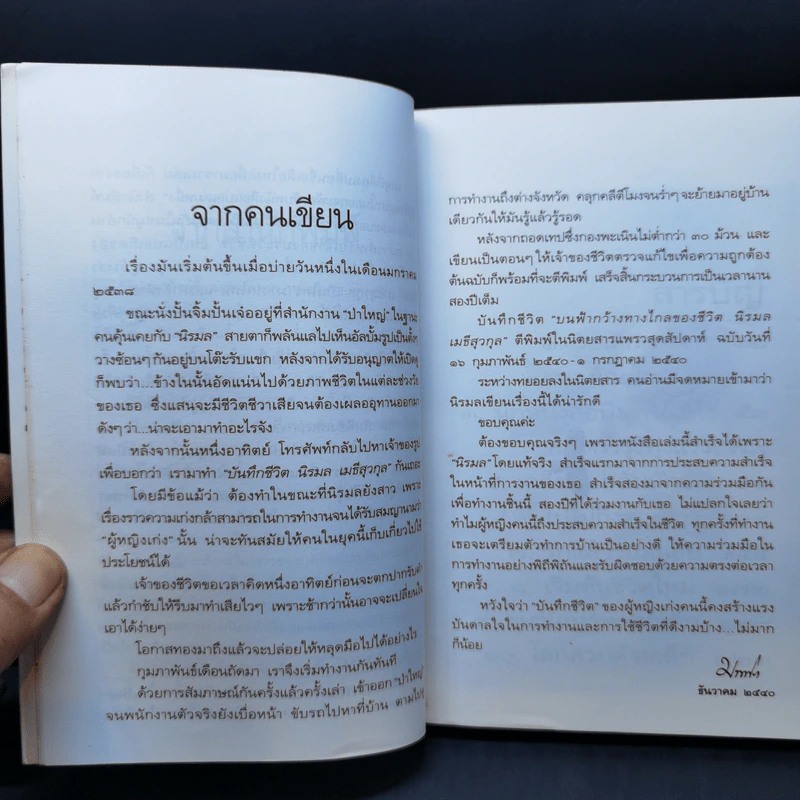 จากคนเขียน
เรื่องมันเริ่มต้นขึ้นเมื่อบ่ายวันหนึ่งในเดือนมกราคม
๒๕๓๘
ขณะนั่งปั้นจิ้มปั้นเจ๋ออยู่ที่สำนักงาน "ป่าใหญ่" ในฐานะ
คนคุ้นเคยกับ "นิรมล" สายตาก็พลันแลไปเห็นอัลบั้มรูปเป็นตั้งๆ
วางซ้อนๆ กันอยู่บนโต๊ะรับแขก หลังจากได้รับอนุญาตให้เปิดดู
ก็พบว่า...ข้างในนั้นอัดแน่นไปด้วยภาพชีวิตในแต่ละช่วงวัย
ของเธอ ซึ่งแสนจะมีชีวิตชีวาเสียจนต้องเผลออุทานออกมา
ดังๆ ว่า..น่าจะเอามาทำอะไรจัง
หลังจากนั้นหนึ่งอาทิตย์ โทรศัพท์กลับไปหาเจ้าของรูป
เพื่อบอกว่า เรามาทำ "บันทึกชีวิต นิรมล เมธีสุวกุล" กันเถอะ
โดยมีข้อแม้ว่า ต้องทำในขณะที่นิรมลยังสาว เพราะ
เรื่องราวความเก่งกล้าสามารถในการทำงานจนได้รับสมญานามว่า
"ผู้หญิงเก่ง" นั้น น่าจะทันสมัยให้คนในยุคนี้เก็บเกี่ยวไปใช้
ประโยชน์ได้
เจ้าของชีวิตขอเวลาคิดหนึ่งอาทิตย์ก่อนจะตกปากรับคำ
แล้วกำชับให้รีบมาทำเสียไวๆ เพราะช้ากว่านั้นอาจจะเปลี่ยนใจ
เอาได้ง่ายๆ
โอกาสทองมาถึงแล้วจะปล่อยให้หลุดมือไปได้อย่างไร
กุมภาพันธ์เดือนถัดมา เราจึงเริ่มทำงานกันทันที
ด้วยการสัมภาษณ์กันครั้งแล้วครั้งเล่า เข้าออก "ป่าใหญ่"
จนพนักงานตัวจริงยังเบื่อหน้า ขับรถไปหาที่บ้าน ตามไปดู
การทำงานถึงต่างจังหวัด คลุกคลีตีโมงจนร่ำๆ จะย้ายมาอยู่บ้าน
เดียวกันให้มันรู้แล้วรู้รอด
หลังจากถอดเทปซึ่งกองพะเนินไม่ต่ำกว่า ๓๐ ม้วน และ
เขียนเป็นตอนๆ ให้เจ้าของชีวิตตรวจแก้ไขเพื่อความถูกต้อง
ต้นฉบับก็พร้อมที่จะตีพิมพ์ เสร็จสิ้นกระบวนการเป็นเวลานาน
สองปีเต็ม
บันทึกชีวิต "บนฟ้ากว้างทางไกลของชีวิต นิรมล
เมธีสุวกุล" ตีพิมพ์ในนิตยสารแพรวสุดสัปดาห์ ฉบับวันที่
๑๖ กุมภาพันธ์ ๒๕๔๐-๑ กรกฎาคม ๒๕๔๐
ระหว่างทยอยลงในนิตยสาร คนอ่านมีจดหมายเข้ามาว่า
นิรมลเขียนเรื่องนี้ได้น่ารักดี
ขอบคุณค่ะ
ต้องขอบคุณจริงๆ เพราะหนังสือเล่มนี้สำเร็จได้เพราะ
"นิรมล" โดยแท้จริง สำเร็จแรกมาจากการประสบความสำเร็จ
ในหน้าที่การงานของเธอ สำเร็จสองมาจากความร่วมมือกัน
เพื่อทำงานชิ้นนี้ สองปีที่ได้ร่วมงานกับเธอ ไม่แปลกใจเลยว่า
ทำไมผู้หญิงคนนี้ถึงประสบความสำเร็จในชีวิต ทุกครั้งที่ทำงาน
เธอจะเตรียมตัวทำการบ้านเป็นอย่างดี ให้ความร่วมมือใน
การทำงานอย่างพิถีพิถันและรับผิดชอบด้วยความตรงต่อเวลา
ทุกครั้ง
หวังใจว่า "บันทึกชีวิต" ของผู้หญิงเก่งคนนี้คงสร้างแรง
บันดาลใจในการทำงานและการใช้ชีวิตที่ดีงามบ้าง...ไม่มาก
ก็น้อย
ธันวาคม ๒๕๔๐